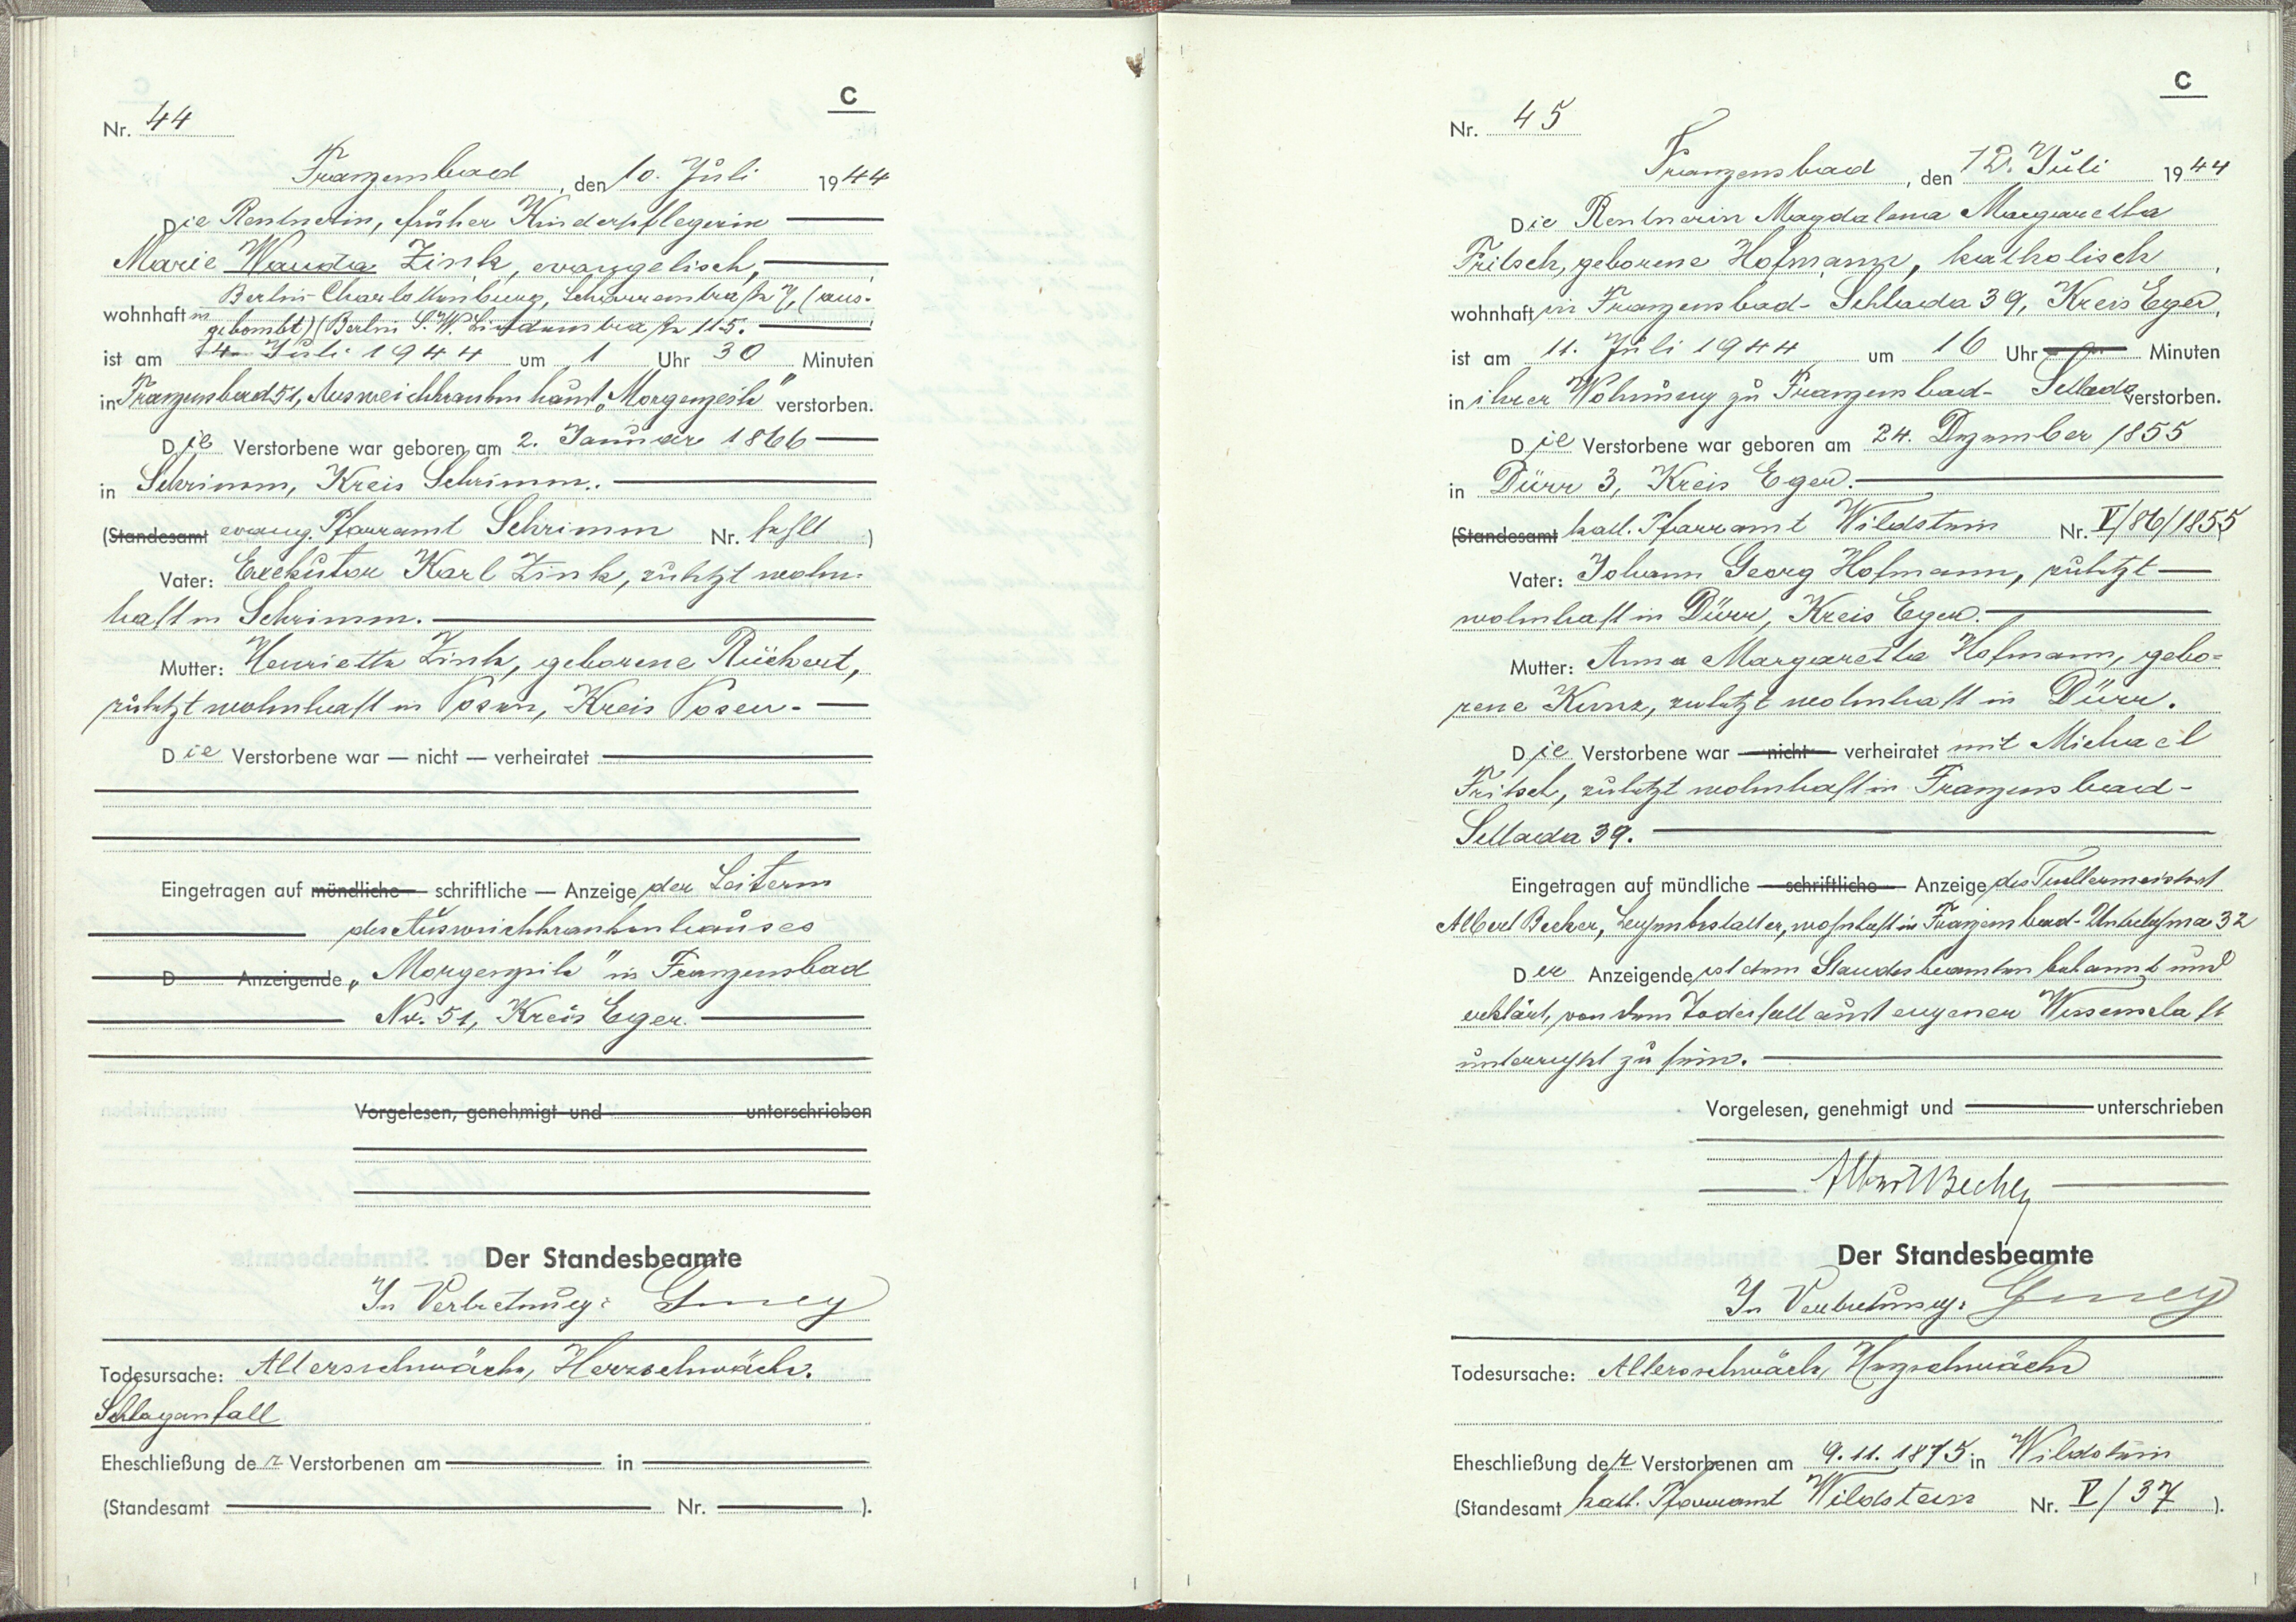 C
Nr. 44
Franzensbad, den 10. Juli 1944
Die Rentnerin, früher Kinderpflegerin
Marie Wanda Zink, evangelisch,
Berlin-Charlottenburg, 7, (aus-
wohnhaft in gebombt) (Berlin S.W. Lindenstraße 115.
ist am 4. Juli 1944 um 1 Uhr 30 Minuten
in Franzensbad 51, Ausweichkrankenhaus „Morgenzeile" verstorben.
Die Verstorbene war geboren am 2. Januar 1866
in Schrimm, Kreis Schrimm.
(Standesamt evang. Pfarramt Schrimm Nr. fehlt )
Vater: Exekutor Karl Zink, zuletzt wohn-
haft in Schrimm.
Mutter: Henriette Zink, geborene Rückert,
zuletzt wohnhaft in Posen, Kreis Posen.
Die Verstorbene war — nicht — verheiratet
Eingetragen auf mündliche — schriftliche — Anzeige der Leiterin
des Ausweichkrankenhauses
D Anzeigende „Morgenzeile" in Franzensbad
Nr. 51, Kreis Eger.
Vorgelesen, genehmigt und unterschrieben
Der Standesbeamte
In Vertretung:
Todesursache: Altersschwäche, Herzschwäche.
Schlaganfall
Eheschließung der Verstorbenen am in
(Standesamt Nr. ).
C
Nr. 45
Franzensbad, den 12. Juli 1944
Die Rentnerin Magdalena Margaretha
Fritsch, geborene Hofmann, katholisch,
wohnhaft in Franzensbad-Schlada 39, Kreis Eger,
ist am 11. Juli 1944 um 16 Uhr Minuten
in ihrer Wohnung zu Franzensbad-Schlada verstorben.
Die Verstorbene war geboren am 24. Dezember 1855
in Dürr 3, Kreis Eger.
(Standesamt kath. Pfarramt Wildstein Nr. V/86/1855)
Vater: Johann Georg Hofmann, zuletzt
wohnhaft in Dürr, Kreis Eger.
Mutter: Anna Margaretha Hofmann, gebo-
rene Kunz, zuletzt wohnhaft in Dürr.
Die Verstorbene war — nicht — verheiratet mit Michael
Fritsch, zuletzt wohnhaft in Franzensbad-
Schlada 39.
Eingetragen auf mündliche — schriftliche — Anzeige des
Albert Becher, Leichenbestatter, wohnhaft in Franzensbad-Unterlohma 32
Der Anzeigende ist dem Standesbeamten bekannt und
erklärt, von dem Todesfall aus eigener Wissenschaft
unterrichtet zu sein.
Vorgelesen, genehmigt und unterschrieben
Albert Becher
Der Standesbeamte
In Vertretung:
Todesursache: Altersschwäche, Herzschwäche
Eheschließung der Verstorbenen am 9.11.1875 in Wildstein
(Standesamt kath. Pfarramt Wildstein Nr. V/37 ).